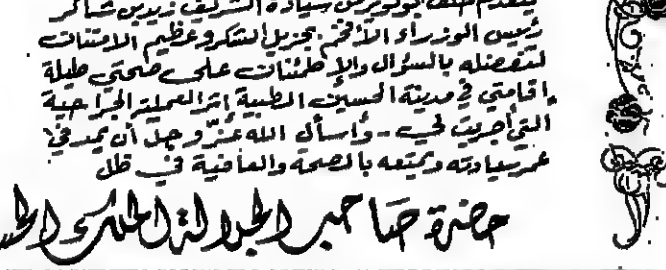 يتقدم خلف بولويرس سيادة الشريف زيد بن شاكر
رئيس الوزراء الأفخم بجزيل الشكر وعظيم الامتنان
لتفضله بالسؤال والإطمئنان على صحتي طيلة
إقامتي في مدينة الحسين الطبية إثر العملية الجراحية
التي أجريت لي - وأسأل الله عز وجل أن يمد في
عمر سيادته ويمتعه بالصحة والعافية في ظل
حضرة صاحب الجلالة الملك